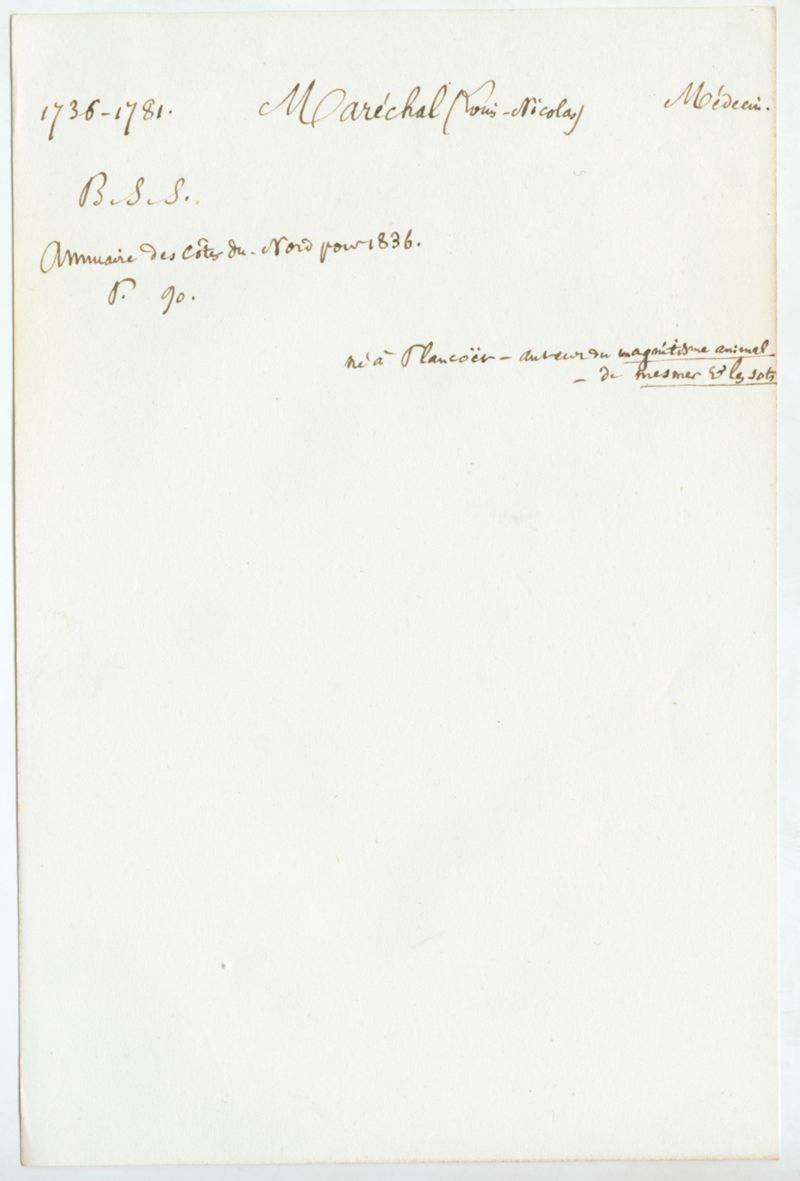 1736-1781. Maréchal (Louis-Nicolas) Médecin.
B. S. S.
Annuaire des Côtes du-Nord pour 1836.
P. 90.
né à Plancoër - auteur du magnétisme animal
- de mesmer & les sots